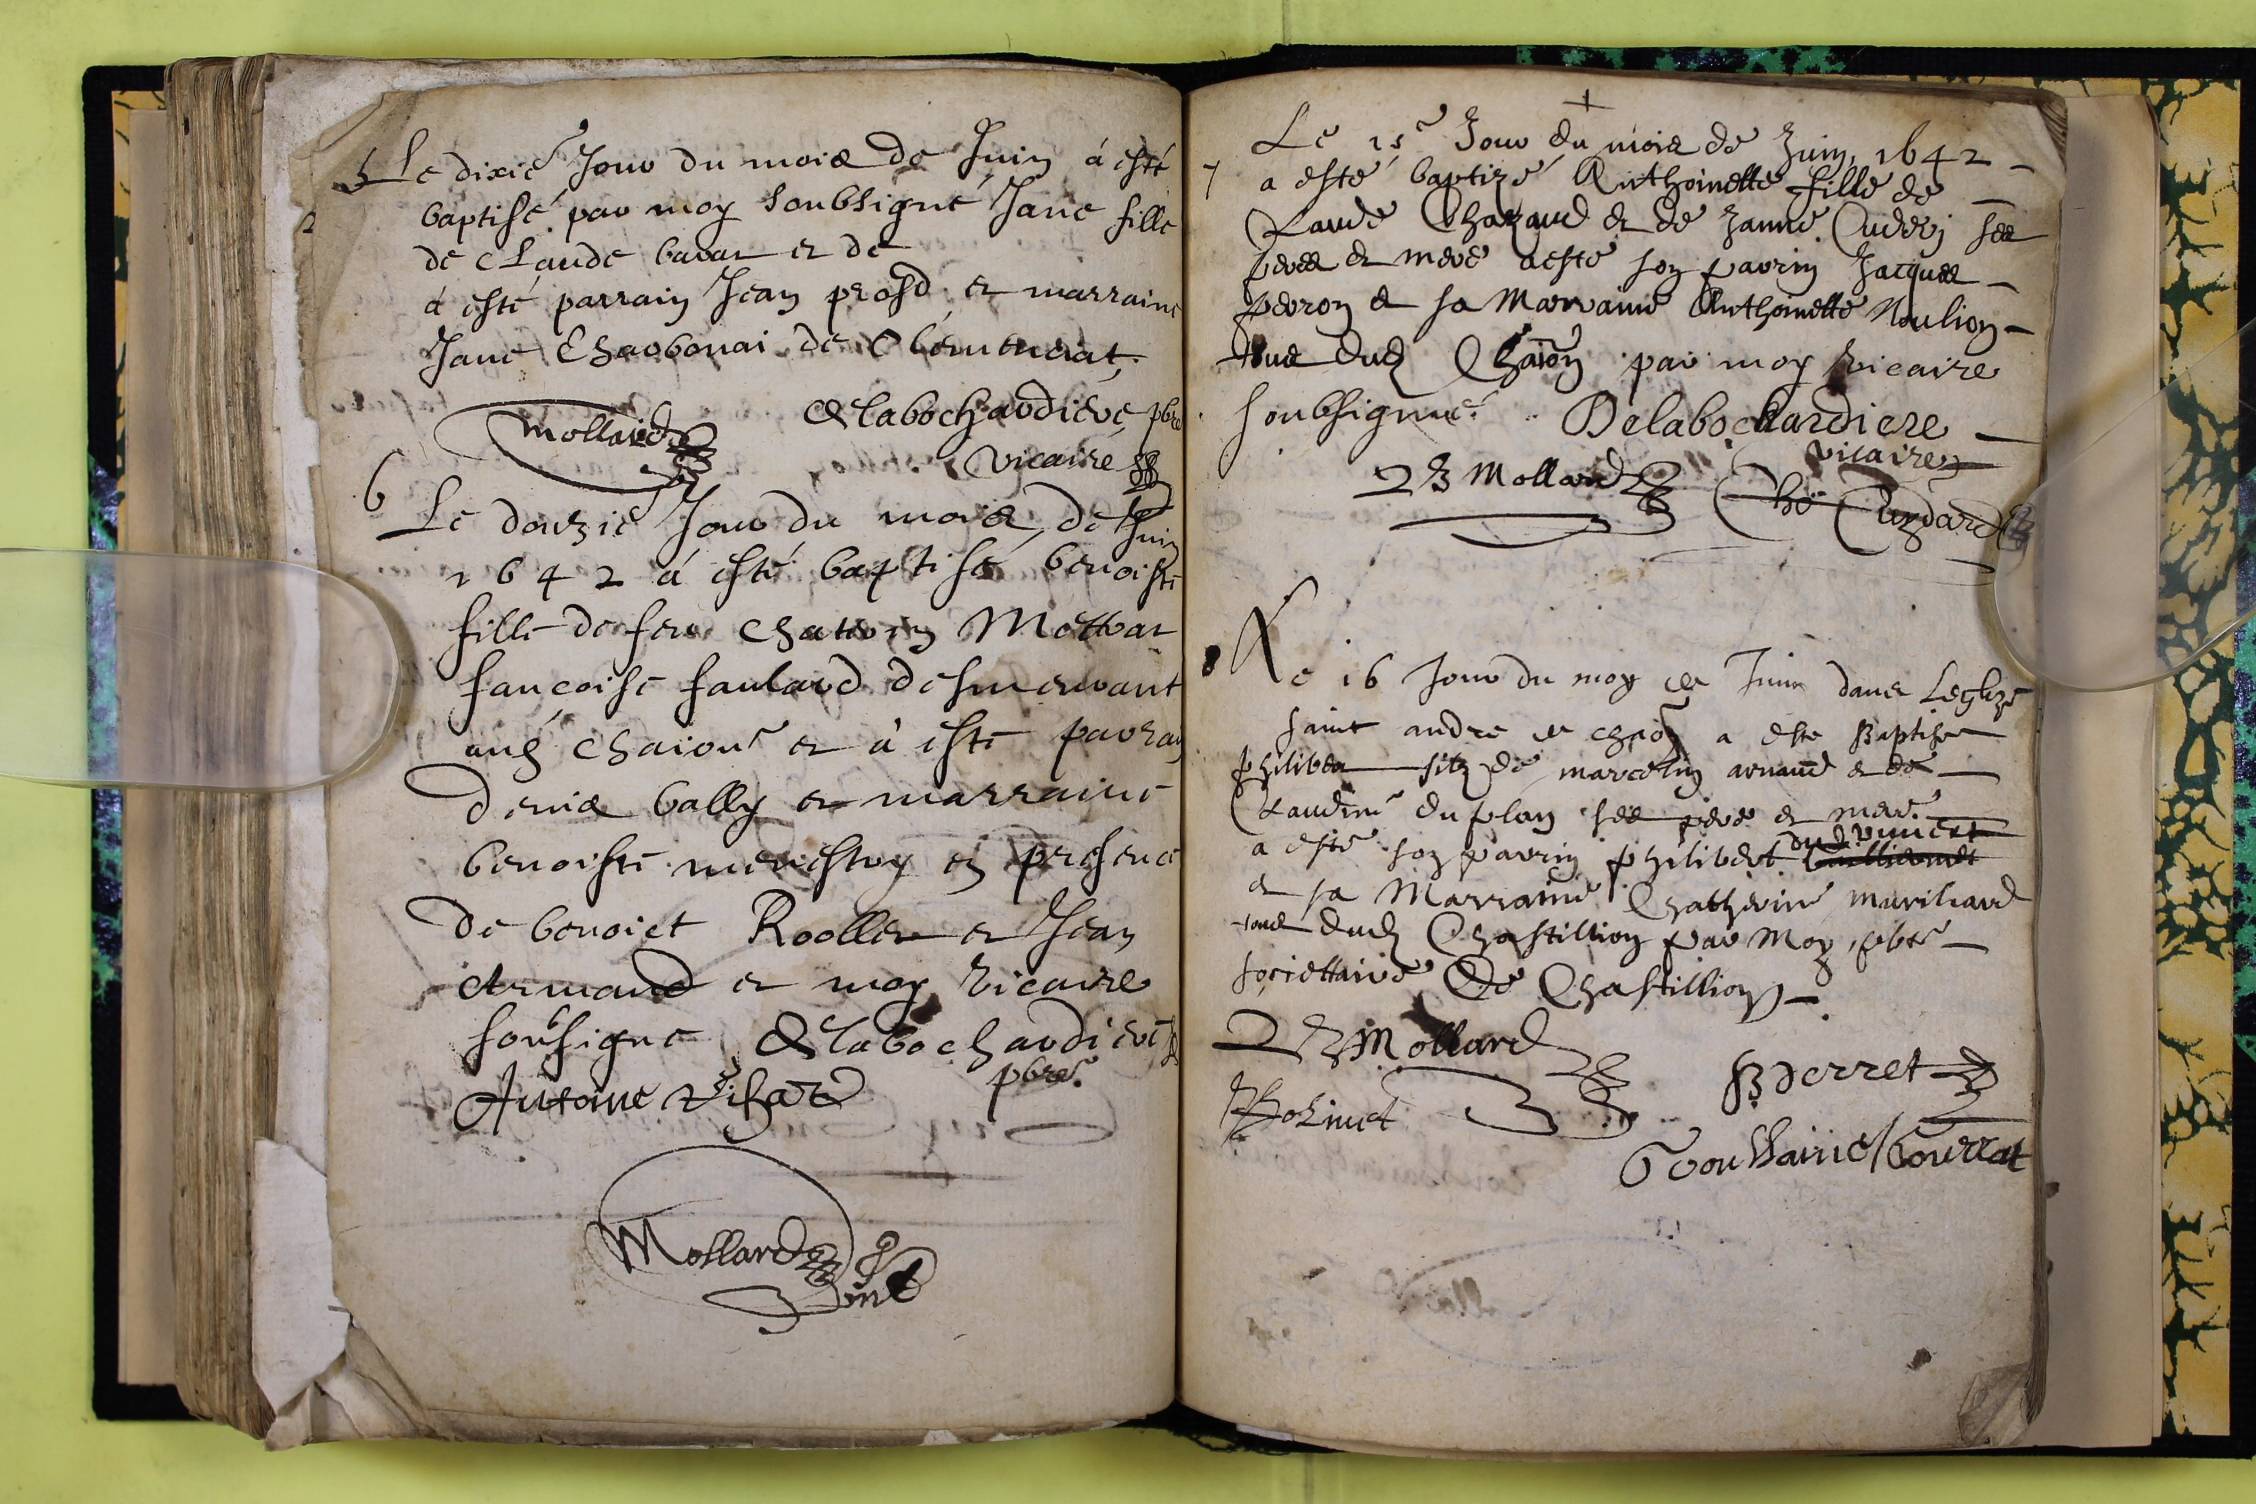 5 Le dixie Jour du mois de Juin á esté
baptisé par moy soubsigné Jane fille
de cLaude bavat et de
á esté parrain Jean prost et marraine
Jane Charbonai de
Delabochardiere pbre
Mollard
vicaire
6 Le douzie Jour du mois de Juin
1642 á esté baptisé benoiste
fille de feu
françoise
aud chaion et á esté parrain
denis bally et marraine
benoiste menestry en presence
de benoict Rooller et Jean
Armand et moy vicaire
soubsigne Delabochardiere
Antoine
pbre
Mollard
Le 15e Jour du mois de Juin 1642
7 a esté baptizé Anthoinette fille de
Claude Chazaud et de Janne ses
peres et mere a esté son parrin Jacques
peron et sa Marraine Anthoinette Moulion
tous dud Chaion par moy vicaire
soubsigné Delabochardiere
vicaire
Mollard
8 Le 16 Jour du moy de Juin dans Leglize
saint andre de chaōn a este Baptise
philibert filz de marcelin arnaud et de
Claudine duplan ses pere et mere
a esté son parrin philibert
et sa Marraine Chatherine
tous dud Chastillion par Moy pbre
societtaire De Chastillion
Mollard
Bderret